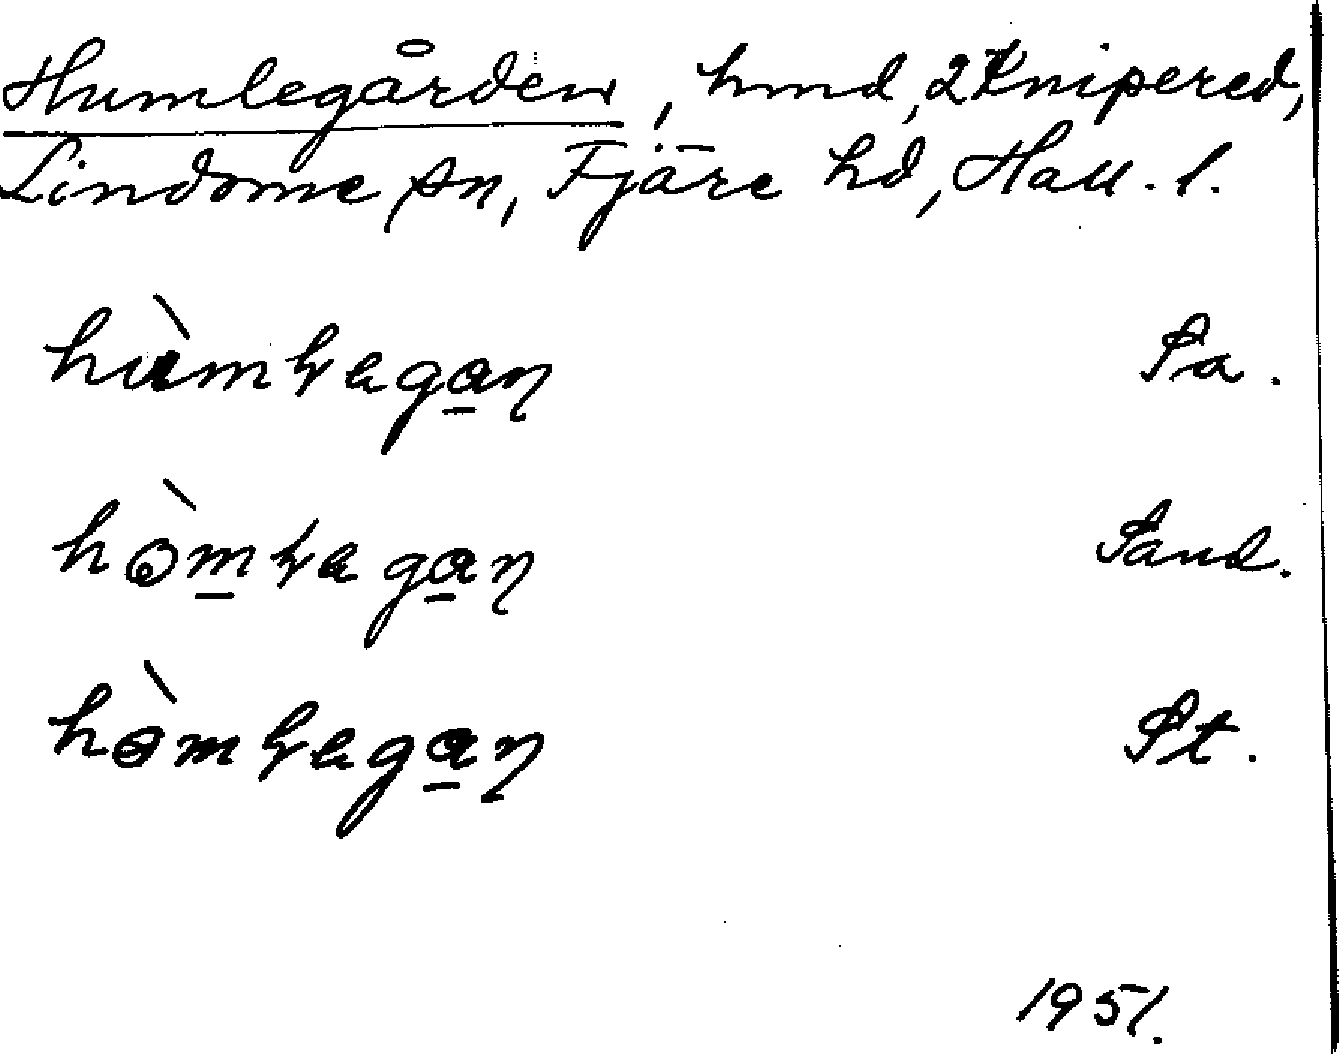 Humlegården, hmd, 2 Knipered,
Lindome sn, Fjäre hd, Hall. l.
hùmɫagan̡ Sa.
hòmɫagan̡ Sand.
hòmɫagan̡ St.
1951.